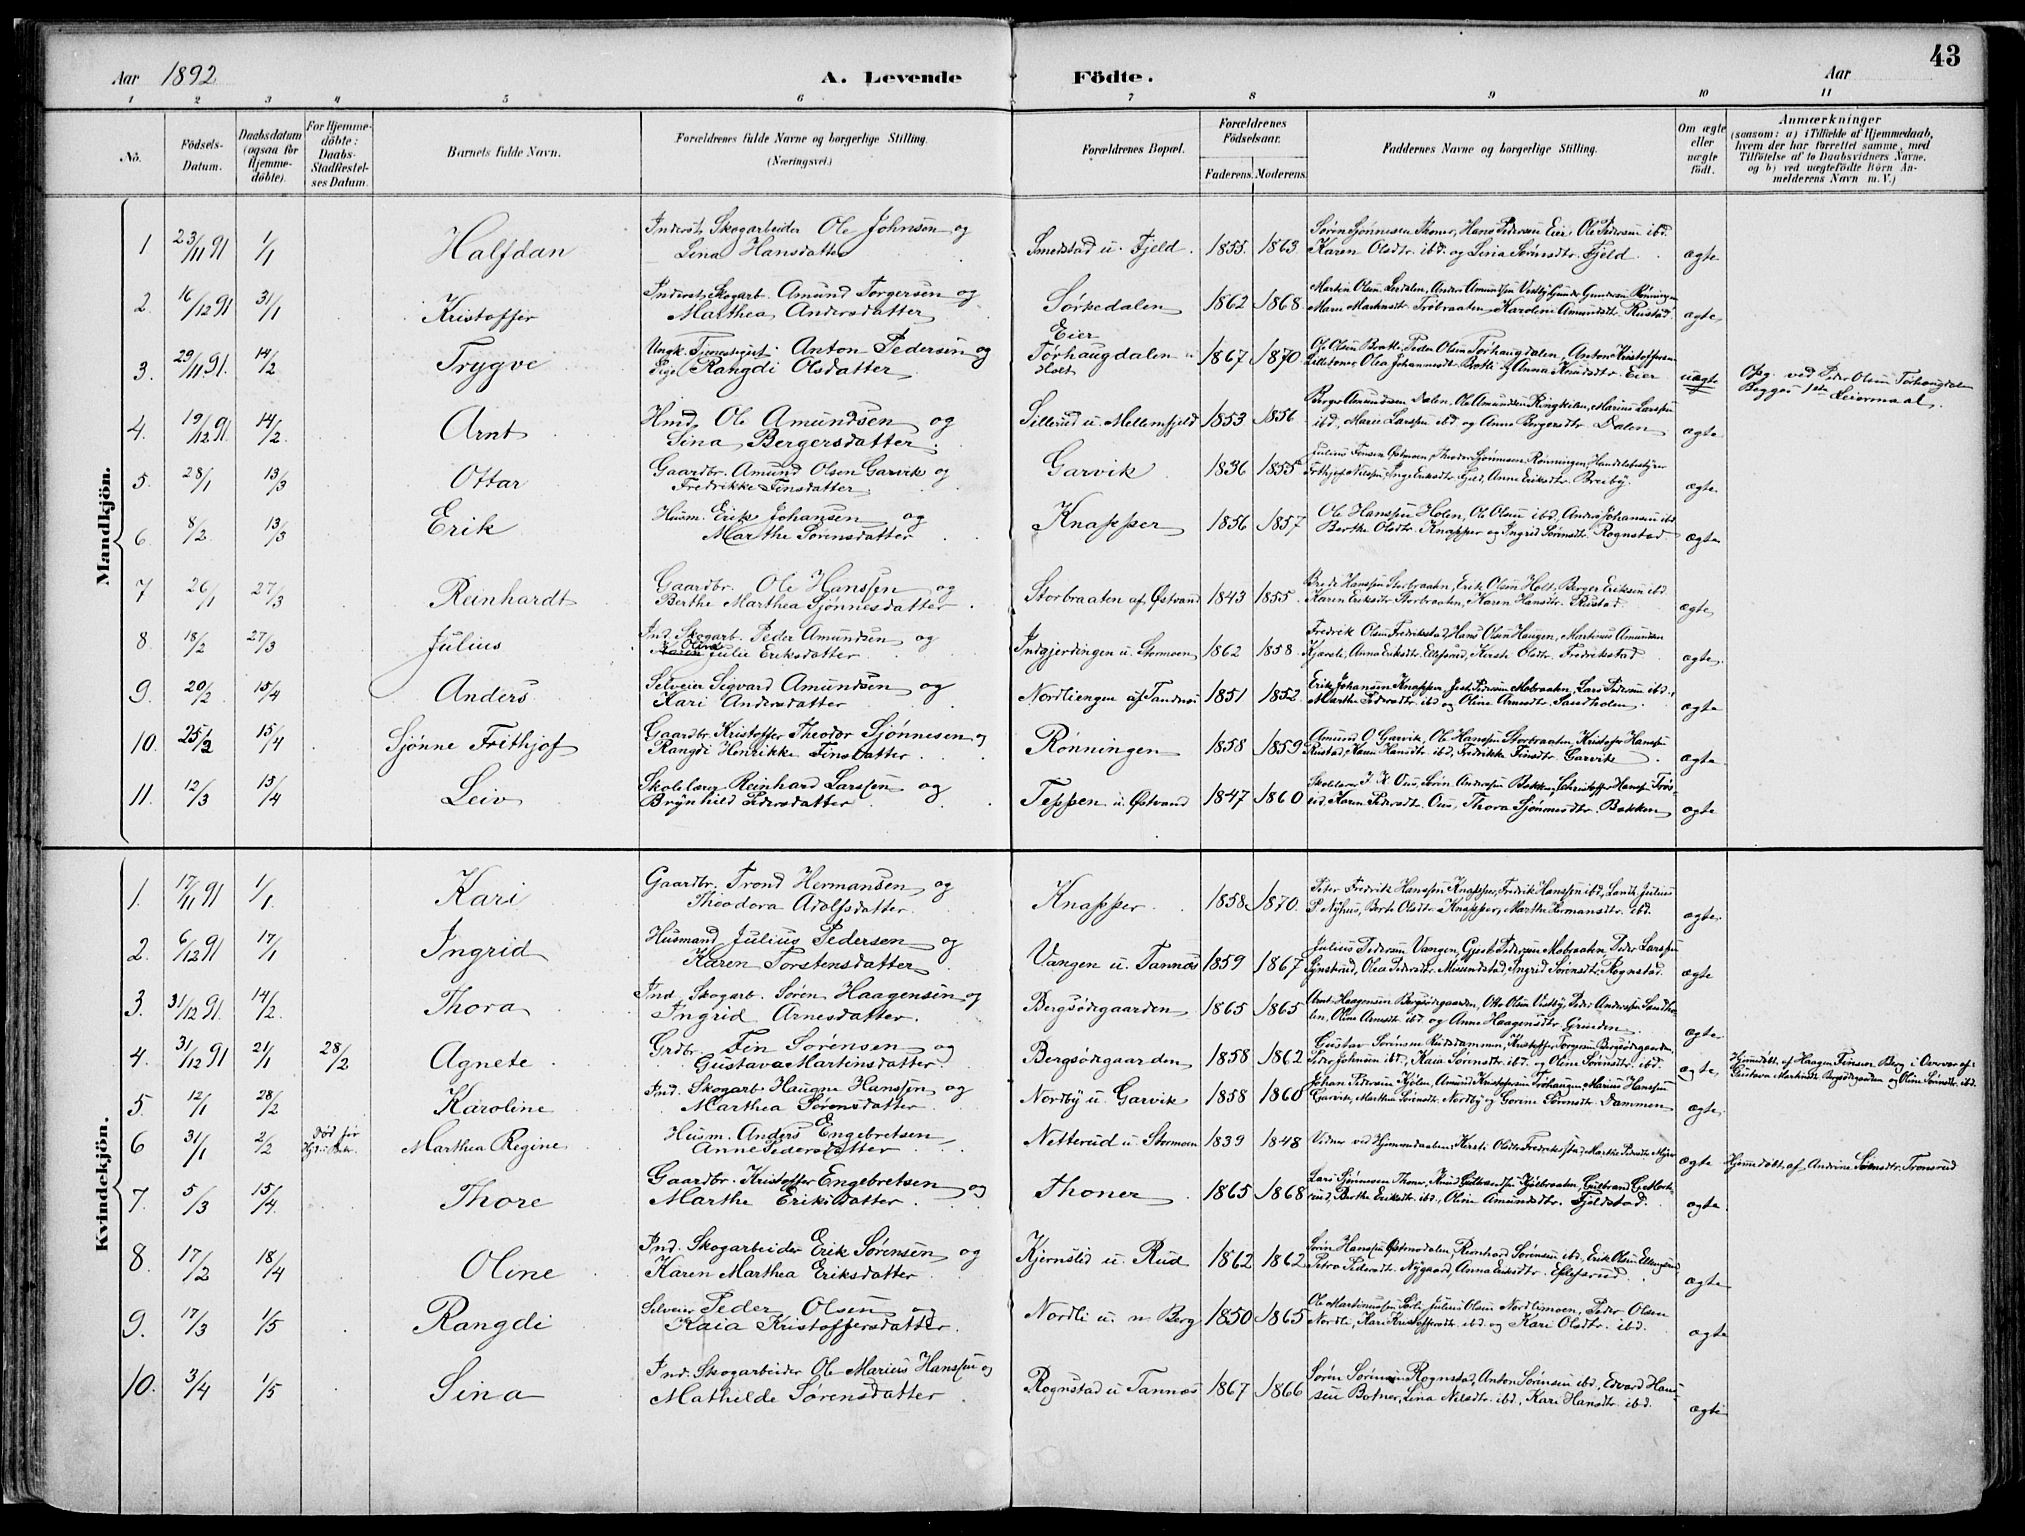 43
Aar 1892
A. Levende Födte.
Aar
1 2 3 4 5 6 7 8 9 10 11
No.
Födsels-Datum.
Daabsdatum (ogsaa for Hjemme-döbte).
For Hjemme-döbte: Daabs-Stadfæstel-ses Datum.
Barnets fulde Navn.
Forældrenes fulde Navne og borgerlige Stilling.
(Næringsvei.)
Forældrenes Bopæl.
Forældrenes Födselsaar.
Faderens. Moderens.
Faddernes Navne og borgerlige Stilling.
Om ægte eller uægte födt.
Anmærkninger
(saasom: a) i Tilfælde af Hjemmedaab,
hvem der har forrettet samme, med
Tilföielse af to Daabsvidners Navne.
og b) ved uægtefödte Börn An-
melderens Navn m. V.)
Mandkjön.
1 23/11 91 1/1 Halfdan
Inderst, Skogarbeider Ole Johnsen og
Lina Hansdatter
Smedstad u. Fjeld. 1855. 1863
Søren Sjønnesen Thoner, Hans Pedersen Eier, Ole Pedersen ibd.
Karen Olsdtr. ibd. og Lina Sørensdtr. Fjeld
ægte
2. 16/12 91 31/1 Kristoffer
Inderst, Skogarb. Amund Torgersen og
Marthea Andersdatter
Sørkedalen 1862 1868
Martin Olsen Leedalen, Anders Amundsen Vestby, Gunder Gundersen Rønningen
Maren Martinsdtr. Trøbraaten, Karoline Amundsdtr. Rustad
ægte
3. 29/11 91. 14/2 Trygve
Ungk. Tjenestegut Anton Pedersen og
Pige Rangdi Olsdatter
Eier
Tørhaugdalen u
Holt
1867 1870
Ole Olsen Bratli, Peder Olsen Tørhaugdalen, Anton Kristoffersen
Lilletoner, Olea Johannesdt. Bratli og Anna Knudsdtr. Eier
uægte
Opg. ved Peder Olsen Tørhaugdalen
Begges 1ste Leiermaal.
4. 19/12 91. 14/2. Arnt
Hmd, Ole Amundsen og
Sina Bergersdatter
Sillerud u. Mellemfjeld 1853 1856
Berger Amundsen Dalen, Ole Amundsen Ringkilen, Marius Larssen
ibd., Marie Larssen ibd og Anne Bergersdtr. Dalen
ægte
5. 28/1 13/3 Ottar
Gaardbr. Amund Olsen Garvik og
Fredrikke Finsdatter
Garvik 1836 1855
Julius Finsen Østmoen, Theodor Sjønnesen Rønningen, Handelsbestyrer
Frithjof Nilssen, Inge Eriksdtr. Fjeld, Anne Eriksdtr. Breiby.
ægte.
6. 8/2. 13/3 Erik
Husm. Erik Johansen og
Marthe Sørensdatter
Knapper 1856 1857
Ole Hanssen Holen, Ole Olsen ibd, Andr. Johansen ibd
Berthe Olsdtr. Knapper og Ingrid Sørensdtr. Rognstad
ægte
7 26/1 27/3 Reinhardt
Gaardbr. Ole Hanssen og
Berthe Marthea Sjønnesdatter
Storbraaten af Østvand 1843 1855
Brede Hanssen Storbraaten, Erik Olsen Holt, Berger Eriksen ibd.
Karen Eriksdtr. Storbraaten, Karen Hansdtr. Rustad
ægte
8 18/2 27/3 Julius
Ind. Skogarb. Peder Amundsen og
Olina
Karen Julie Eriksdatter
Indgjerdingen u. Stormoen 1862 1858.
Fredrik Olsen Fredrikstad, Hans Olsen Haugen, Martinus Amundsen
Kjærsti, Anna Eriksdtr. Ellefsrud, Kersti Olsdtr. Fredrikstad
ægte.
9. 20/2 15/4 Anders
Selveier Sigvard Amundsen og
Kari Andersdatter
Nordliengen af Tandnæs 1851 1852
Erik Johansen Knapper, Jest Pedersen Mobraaten, Lars Pedersen ibd.
Marthe Pedersdtr. ibd og Oline Arnesdtr. Sandholen.
ægte
10. 25/2 15/4 Sjønne Frithjof
Gaardbr. Kristoffer Theodor Sjønnesen og
Rangdi Henrikke Finsdatter
Rønningen 1858 1859
Amund O. Garvik, Ole Hanssen Storbraaten, Kristofer Hanssen
Rustad, Karen Hansdtr. ibd, Fredrikke Finsdtr. Garvik
ægte
11. 12/3 15/4 Leiv
Skolelærer Reinhard Larssen og
Brynhild Pedersdatter
Teppen u Østvand 1847 1860
Skolelærer J. K. Ous, Søren Andersen Bakken, Christoffer Hansen Trøs-
rud, Karen Pedersdtr. Ous, Thora Sjønnesdtr. Bakken
ægte
Kvindekjön.
1. 17/11 91 1/1. Kari
Gaardbr. Trond Hermansen og
Theodora Adolfsdatter
Knapper. 1858. 1870.
Peter Fredrik Hanssen Knapper, Fredrik Hanssen ibd, Lauritz Julius
P. Nyhus, Berte Olsdtr. Knapper, Marthe Hermansdtr. ibd.
ægte.
2. 6/12 91 17/1 Ingrid
Husmand Julius Pedersen og
Karen Torstensdatter
Vangen u. Tannæs 1859 1867
Julius Pedersen Vangen, Gjest Pedersen Mobraaten, Peder Larssen
Lynstrud, Olea Pedersdtr. Misundstad, Ingrid Sørensdtr. Rognstad.
ægte
3. 31/12 91. 14/2. Thora
Ind. Skogarb. Søren Haagensen og
Ingrid Arnesdatter.
Bergsødegaarden 1865 1865
Arnt Haagensen Bergsødegaarden, Otto Olsen Vestby, Peder Anderssen Sandho-
len, Oline Arnesdtr. ibd. og Anne Haagensdtr. Grinden
ægte
4. 31/12 91 21/1 28/2 Agnete
Grdbr. Fin Sørensen og
Gustava Martinsdatter
Bergsødegaarden 1858 1862
Gustav Sørensen Rudsdammen, Kristoffer Torgersen Bergsødegaarden,
Peder Johnsen ibd, Kaia Sørensdtr. ibd. og Oline Sørensdtr. ibd.
ægte
Hjemdøbt af Haagen Finsen Berg i Overvær af
Gustava Martinsdtr. Bergsødegaarden og Oline Sørensdtr. ibd.
5. 12/1 28/2 Karoline
Ind. Skogarb Haugne Hanssen og
Marthea Sørensdatter
Nordby u. Garvik 1858 1860
Johan Pedersen Kjølen, Amund Kristoffersen Tørhaugen, Marius Hanssen
Garvik, Marthea Sørensdtr. Nordby og Gorine Sørensdtr. Dammen
ægte.
6 31/1 2/2 Død før Marthea Regine
Husm. Anders Engebretsen
Anne Pedersdatter
Netterud u. Stormoen 1839 1848
Vidner ved Hjemmedaaben, Kersti Olsdtr. Fredrikstad, Marthe Pedersdtr. Myhre
ægte
Hjemmedøbt af Andrine Sørensdtr. Tronsrud
7. 5/3 15/4. Thore
Gaardbr. Kristoffer Engebretsen og
Marthe Eriksdatter
Thoner 1865 1868
Lars Sjønnesen Thoner, Knud Gulbrandsen Kjølbraaten, Gulbrand C. Morte-
rud, Berthe Eriksdtr. ibd., Oline Amundsdtr. Fjeldstad.
ægte
8. 17/2 18/4 Oline
Ind. Skogarbeider Erik Sørensen og
Karen Marthea Eriksdatter
Kjernslid u. Rud 1862 1862
Søren Hanssen Østmodalen, Reinhard Sørensen ibd. Erik Olsen Ellefsrud
Petra Pedersdt. Nygaard, Anna Eriksdtr. Ellefsrud
ægte
9. 17/3 1/5 Rangdi
Selveier Peder Olsen og
Kaia Kristoffersdatter.
Nordli u. n Berg 1850 1865
Ole Martinussen Sørli, Julius Olsen Nordlimoen, Peder Olsen
Nordli, Kari Kristoffersdt. ibd. og Kari Olsdtr. ibd.
ægte
10. 3/4 1/5 Sina
Ind. Skogarbeider Ole Marius Hanssen og
Mathilde Sørensdatter
Rognstad u Tannæs 1867 1866
Søren Sørensen Rognstad, Anton Sørensen ibd., Edvard Hans-
sen Botner, Lina Nilsdtr. ibd, Kari Hansdtr. ibd.
ægte